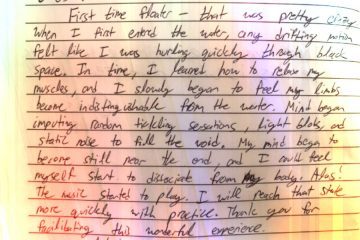 First time floater – that was pretty crazy
When I first entered the water, any drifting motion
felt like I was hurling quickly through black
space. In time, I learned how to relax my
muscles, and I slowly began to feel my limbs
become indistinguishable from the water. Mind began
inputing random tickling sensations, light blobs, and
static noise to fill the void. My mind began to
become still near the end, and I could feel
myself start to dissociate from my body. Alas!
The music started to play. I will reach that state
more quickly with practice. Thank you for
facilitating this wonderful experience.